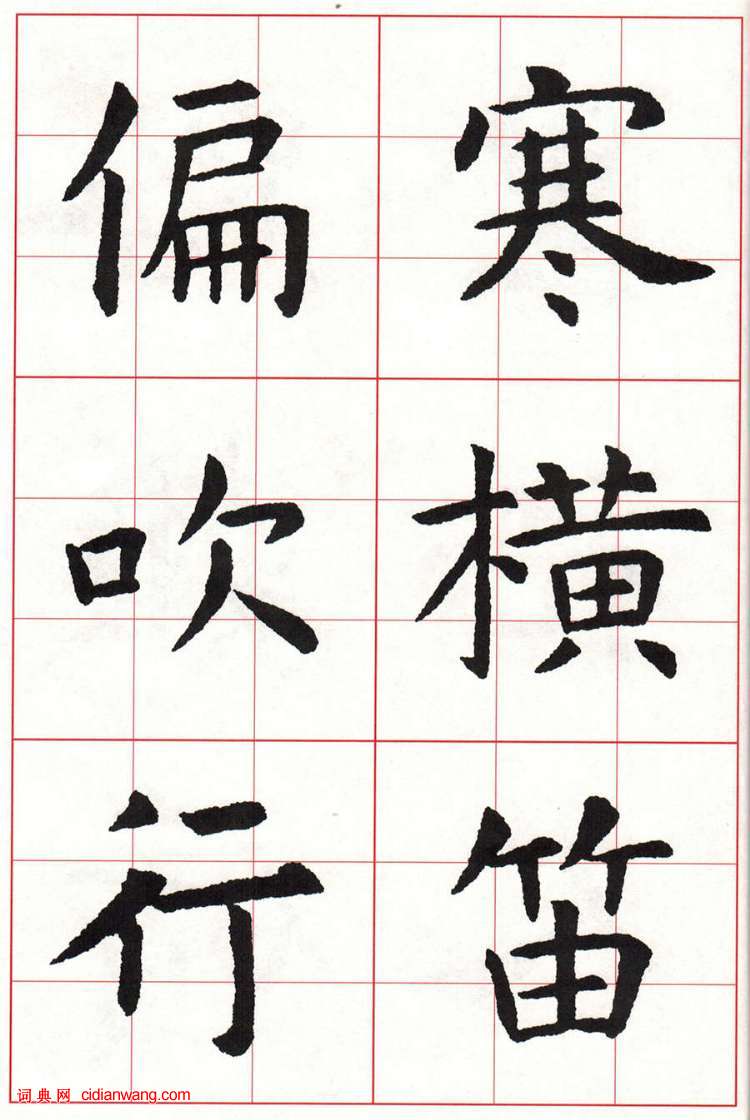 寒橫笛
偏吹行
词典网 cidianwang.com